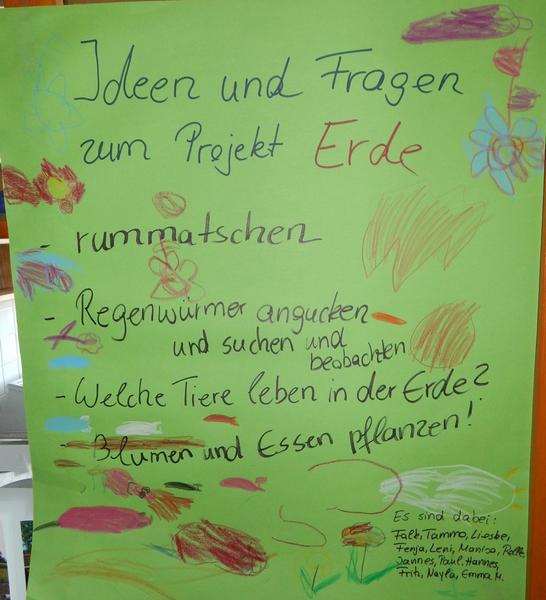 Ideen und Fragen
zum Projekt Erde
- rummatschen
- Regenwürmer angucken
und suchen und
beobachten
- Welche Tiere leben in der Erde?
- Blumen und Essen pflanzen!
Es sind dabei:
Falk, Tammo, Lieske,
Fenja, Leni, Mariso,
Jannes, Paul, Hannes,
Frith, Nayla, Emma M.